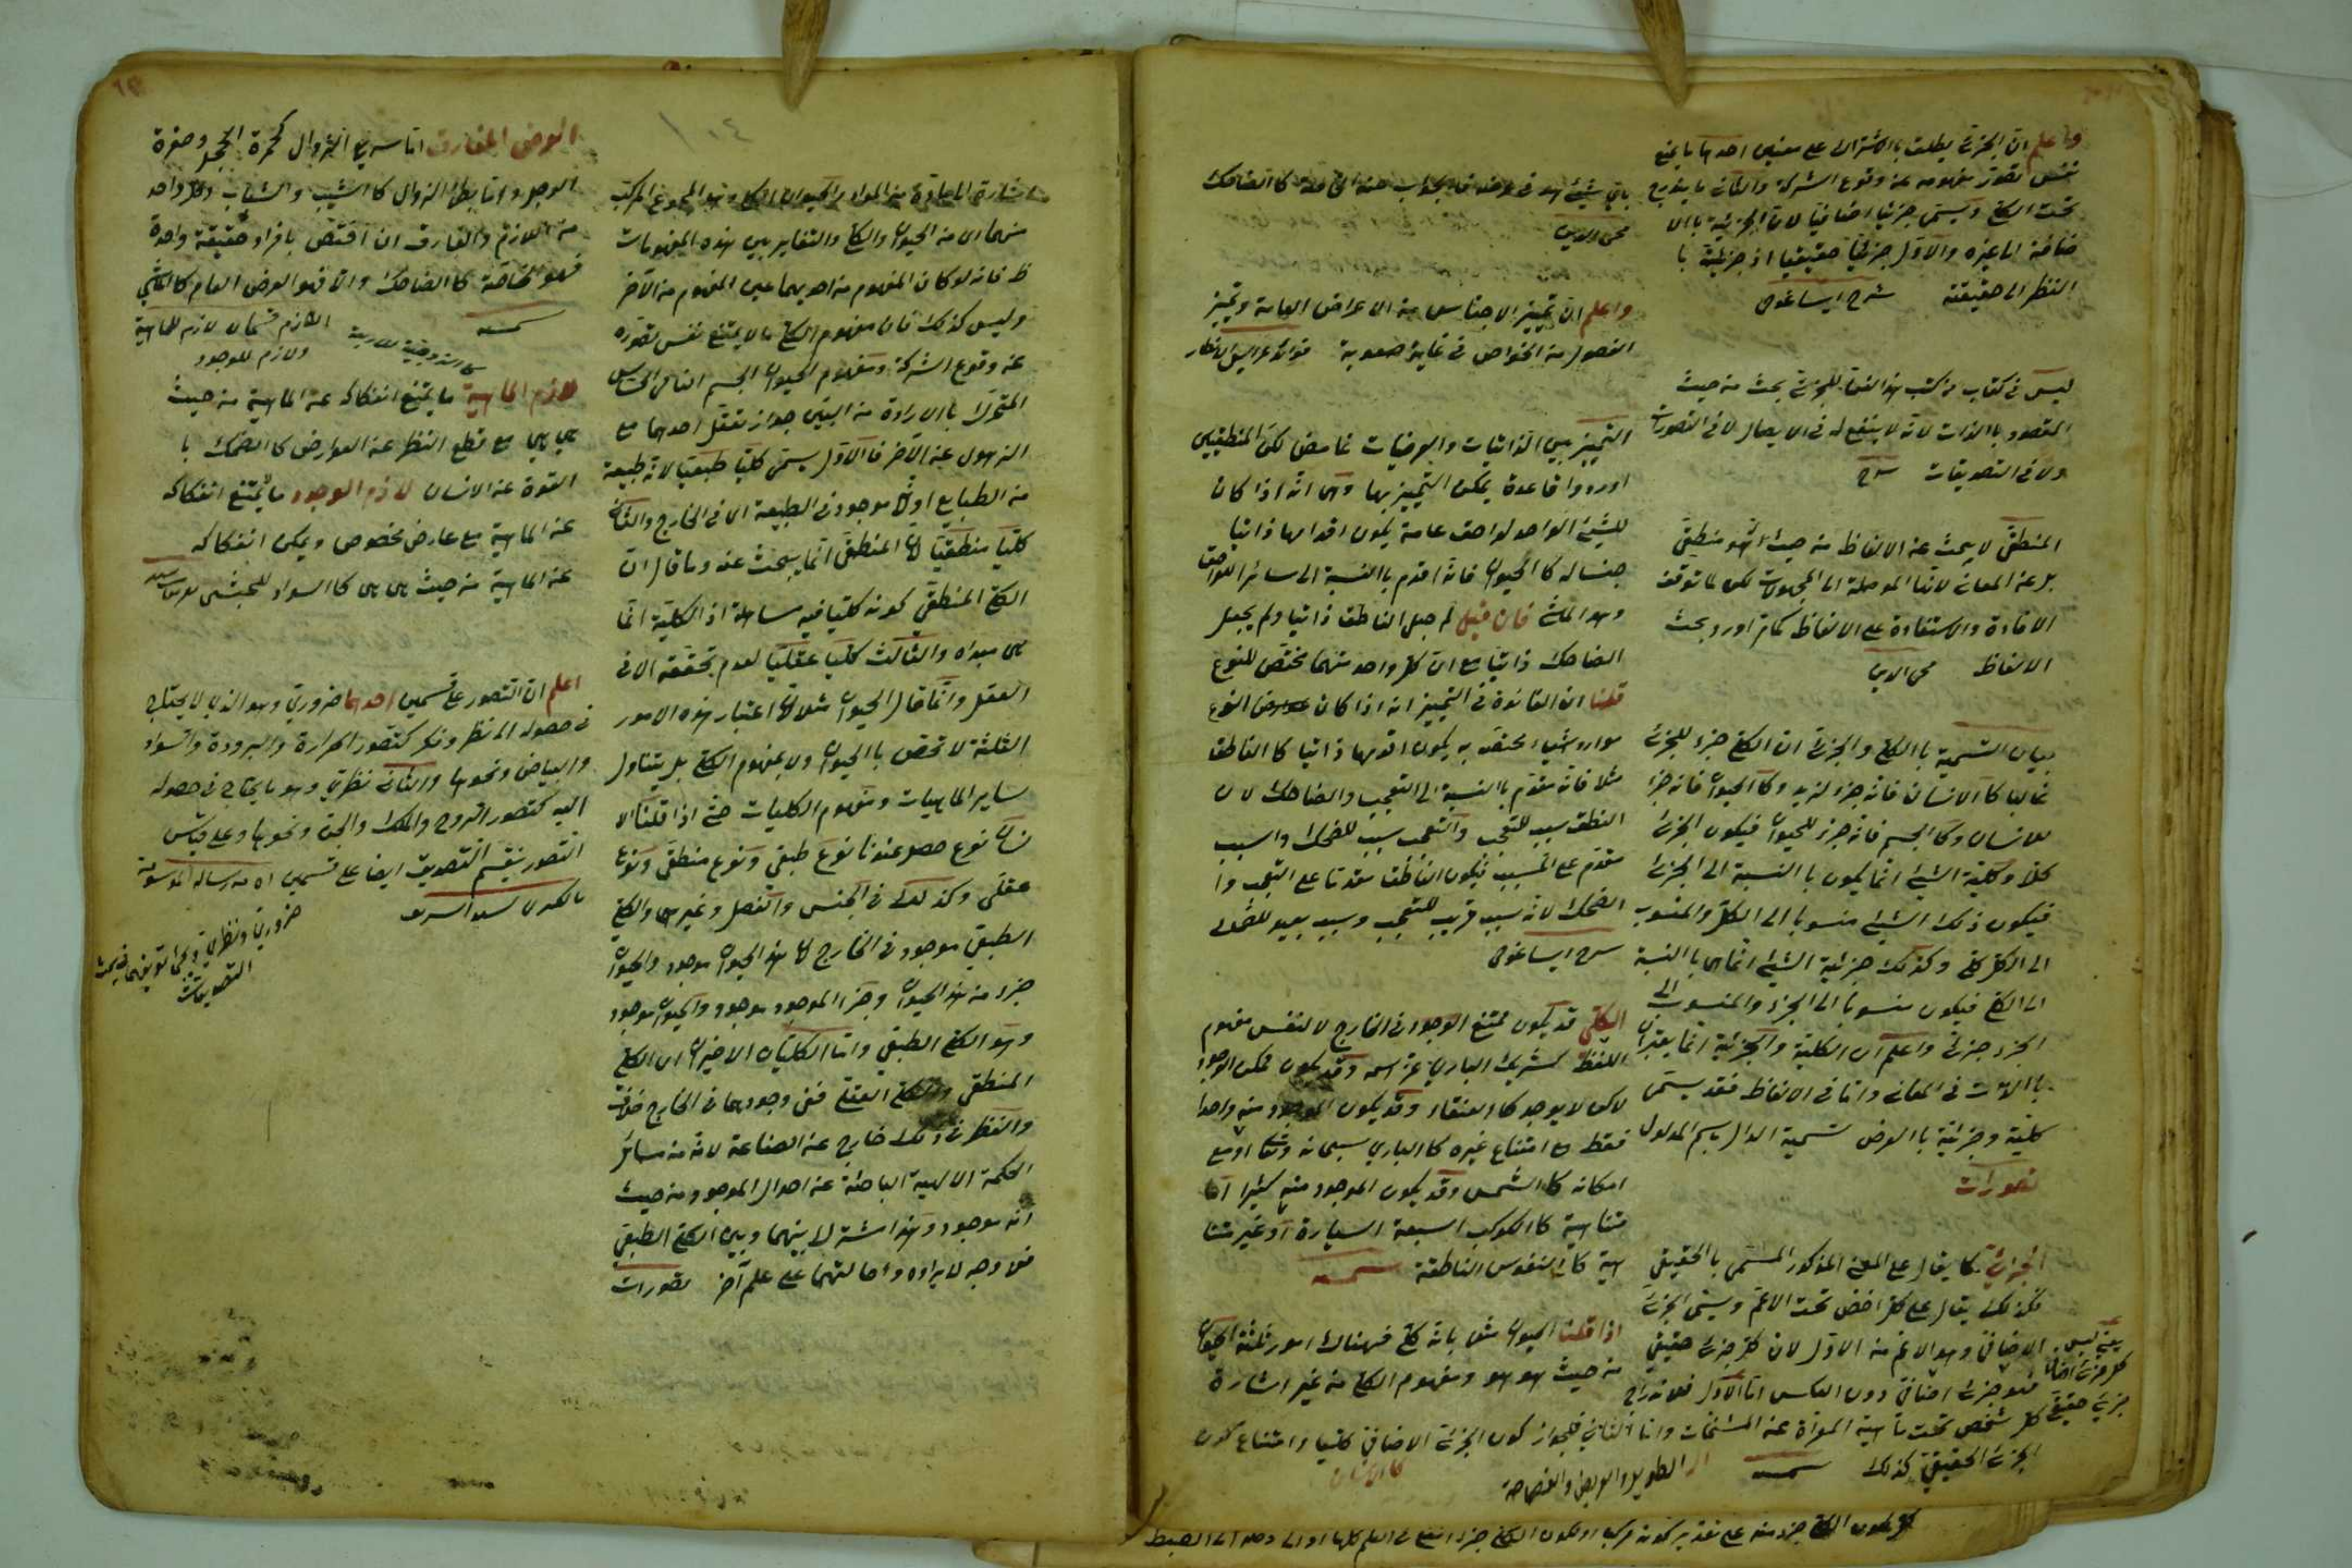 واعلم ان الجزئي يطلق بالاشتراك على معنيين احدهما ما يمنع
نفس تصور مفهومه عن وقوع الشركة والثاني ما يندرج
تحت الكلي ويسمى جزئيا اضافيا لان الجزئية بالا
ضافة الى غيره والاول جزئيا حقيقيا اذ جزئية با
النظر الى حقيقته شرح ايساغوجى
ليس فى كتاب من كتب هذا الفن للجزئي بحث من حيث
المقصود بالذات لانه لا ينتفع له فى الايصال لا فى التصورات
ولا فى التصديقات
المنطقي لا يبحث عن الالفاظ من حيث انه منطقي
بل عن المعاني لانها الموصلة الى المجهولات لكن لما توقف
الافادة والاستفادة على الالفاظ اورد بحث
الالفاظ محى الدين
بيان التسمية باالكلي والجزئي ان الكلي جزء للجزئي
غالبا كاالانسان فانه جزء لزيد وكا الحيوان فانه جزء
للانسان وكا الجسم فانه جزء للحيوان فيكون الجزئي
كلا وكلية الشيئ انما يكون باالنسبة الى الجزئي
فيكون ذلك الشيئ منسوبا الى الكل والمنسوب
الى الكل كلي وكذلك جزئية الشيئ انما هى باالنسبة
الى الكلي فيكون منسوبا الى الجزء والمنسوب الى
الجزء جزئي واعلم ان الكلية والجزئية انما يعتبران
باالذات فى المعاني واما فى الالفاظ فقد يسمى
كلية وجزئية باالعرض تسمية الدال باسم المدلول
تصورات
الجزئي كما يقال على المعنى المذكور المسمى باالحقيقي
فكذلك يقال على كل اخص تحت الاعم ويسمى الجزئي
الاضافي وهو الاعم من الاول لان كل جزئي حقيقي
فهو جزئي اضافي دون العكس اما الاول فلاندراج
كل شخص تحت ماهية المعراة عن المشخصات واما الثاني فلجواز كون الجزئي الاضافي كليا وامتناع كون
الجزئي الحقيقي كذلك شمسيه
يعنى ليس
كل جزئي اضافي
جزئي حقيقي
كا الانسان
باي شيئ هو فى عرضه فا الجواب عنه الخاصة كا الضاحك
محى الدين
واعلم ان تمييز الاجناس من الاعراض العامة وتمييز
الفصول من الخواص فى غاية صعوبة
التمييز بين الذاتيات والعرضيات غامض لكن المنطقيين
اوردوا قاعدة يمكن التمييز بها وهى انه اذا كان
للشيئ الواحد لواحق عامة يكون اقدمها ذاتيا
جنسا له كا الحيوان فانه اقدم باالنسبة الى سائر اللواحق
وهو الماشى فان قيل لم جعل الناطق ذاتيا ولم يجعل
الضاحك ذاتيا مع ان كل واحد منهما مختص للنوع
قلنا ان القاعدة فى التمييز انه اذا كان النوع
اشياء مختصة به يكون اقدمها ذاتيا كا الناطق
مثلا فانه مقدم باالنسبة الى التعجب والضاحك لان
النطق سبب للتعجب والتعجب سبب للضحك والسبب
مقدم على المسبب فيكون الناطق مقدما على التعجب وا
الضحك لانه سبب قريب للتعجب وسبب بعيد للضحك
شرح ايساغوجى
الكلي قد يكون ممتنع الوجود فى الخارج لا لنفس مفهوم
اللفظ كشريك الباري عز اسمه وقد يكون ممكن الوجود
لكن لا يوجد كا العنقاء وقد يكون الموجود منه واحدا
فقط مع امتناع غيره كا الباري سبحانه وتعالى او مع
امكانه كا الشمس وقد يكون الموجود منه كثيرا اما
متناهية كا الكوكب السبعة السيارة او غير متنا
هية كا النفوس الناطقة شمسيه
اذا قلنا الحيوان مثلا بانه كلي فهناك امور ثلثة الحيوان
من حيث هو هو ومفهوم الكلي من غير اشارة
١٠٤
اشارة الى مادة من المواد والحيوان الكلي وهو المجموع المركب
منهما اى من الحيوان والكلي والتغاير بين هذه المفهومات
ظ فانه لو كان المفهوم من احديهما عين المفهوم من الآخر
وليس كذلك فان مفهوم الكلي ما لا يمتنع نفس تصوره
عن وقوع الشركة ومفهوم الحيوان الجسم النامى الحساس
المتحرك باالارادة من البين جواز تعقل احدهما مع
الذهول عن الآخر فا الاول يسمى كليا طبيعيا لانه طبيعة
من الطبايع او لانه موجود فى الطبيعة اى فى الخارج والثاني
كليا منطقيا لان المنطقي انما يبحث عنه وما قال ان
الكلي المنطقي كونه كليا فيه مساهلة اذ الكلية انما
هى مبداه والثالث كليا عقليا لعدم تحققه الا فى
العقل وانما قال الحيوان مثلا لان اعتبار هذه الامور
الثلثة لا تختص باالحيوان ولا بمفهوم الكلي بل يتناول
ساير الماهيات ومفهوم الكليات حتى اذا قلنا الا
نسان نوع حصل عندنا نوع طبيعي ونوع منطقي ونوع
عقلي وكذلك فى الجنس والفصل وغيرهما والكلي
الطبيعي موجود فى الخارج لان هذا الحيوان موجود والحيوان
جزء من هذا الحيوان وجزء الموجود موجود والحيوان موجود
وهو الكلي الطبيعي واما الكليان الاخيران اى الكلي
المنطقي والكلي العقلي ففى وجودهما فى الخارج خلاف
والنظر فى ذلك خارج عن الصناعة لانه من مسائل
الحكمة الالهية الباحثة عن احوال الموجود من حيث
انه موجود وهذا مشترك بينهما وبين الكلي الطبيعي
فلا وجه لايراده واحالتهما على علم آخر تصورات
العرض المفارق اما سريع الزوال كحمرة الخجل وصفرة
الوجل واما بطئ الزوال كا الشيب والشباب وكل واحد
من اللازم والمفارق ان اختص بافراد حقيقة واحدة
فهو الخاصة كا الضاحك والا فهو العرض العام كا الماشى
شمسيه
اللازم قسمان لازم للماهية
ولازم للوجود
لازم الماهية ما يمتنع انفكاكه عن الماهية من حيث
هى هى مع قطع النظر عن العوارض كا الضحك با
القوة عن الانسان لازم الوجود ما يمتنع انفكاكه
عن الماهية مع عارض مخصوص ويمكن انفكاكه
عن الماهية من حيث هى هى كا السواد للحبشى
اعلم ان التصور على قسمين احدهما ضروري وهو الذي لا يحتاج
فى حصوله الى نظر وفكر كتصور الحرارة والبرودة والسواد
والبياض ونحوها والثاني نظري وهو ما يحتاج فى حصوله
اليه كتصور الروح والملك والجن ونحوها وعلى قياس
التصور ينقسم التصديق ايضا على قسمين
ضروري ونظري
التصديقات